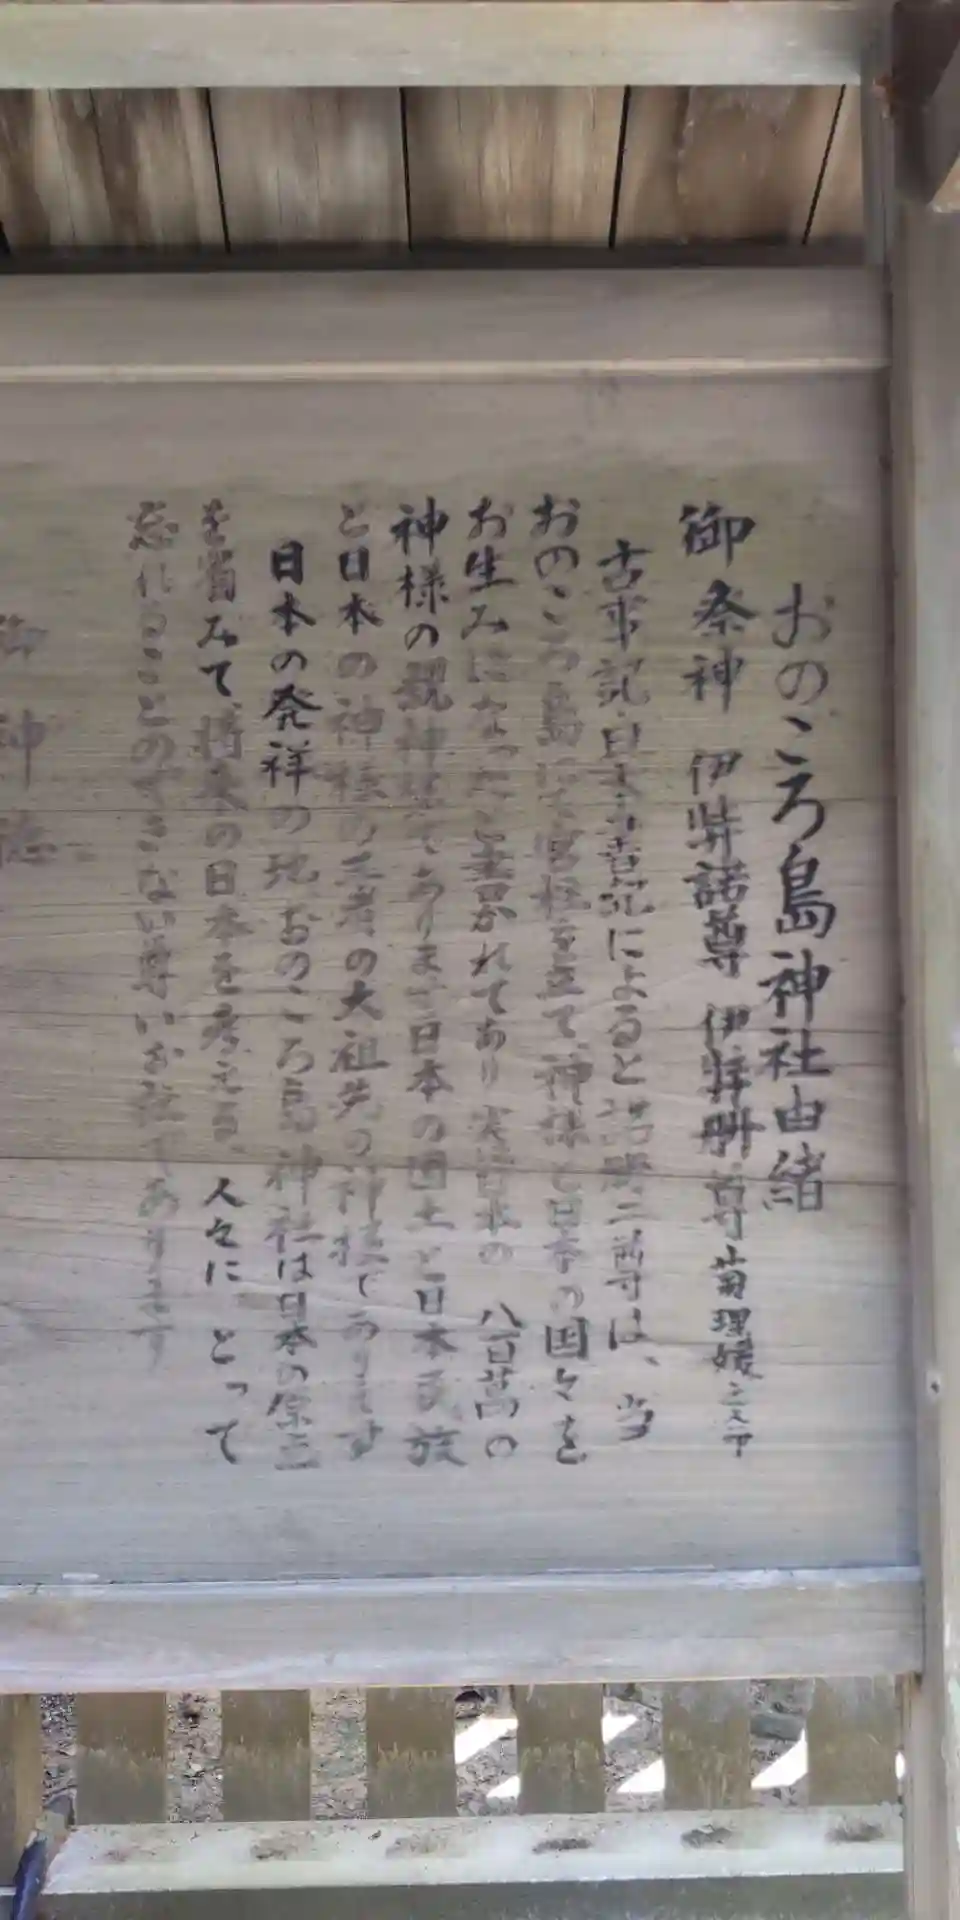 おのころ島神社由緒
御祭神 伊弉諾尊 伊弉冊尊 菊理媛之命
古事記・日本書記によると諾冊二尊は、当
おのころ島にて宮柱を立て、神様と日本の国々を
お生みになったと書かれてあり 実に日本の 八百萬の
神様の親神せてあります日本の国土と日本民族
と日本の神様の三者の大祖先の神様であります
日本の発祥の地、おのころ島神社は日本の
を省みて、将来の日本を考える、人々に とって
忘れることのできない尊いお社であります
御神徳